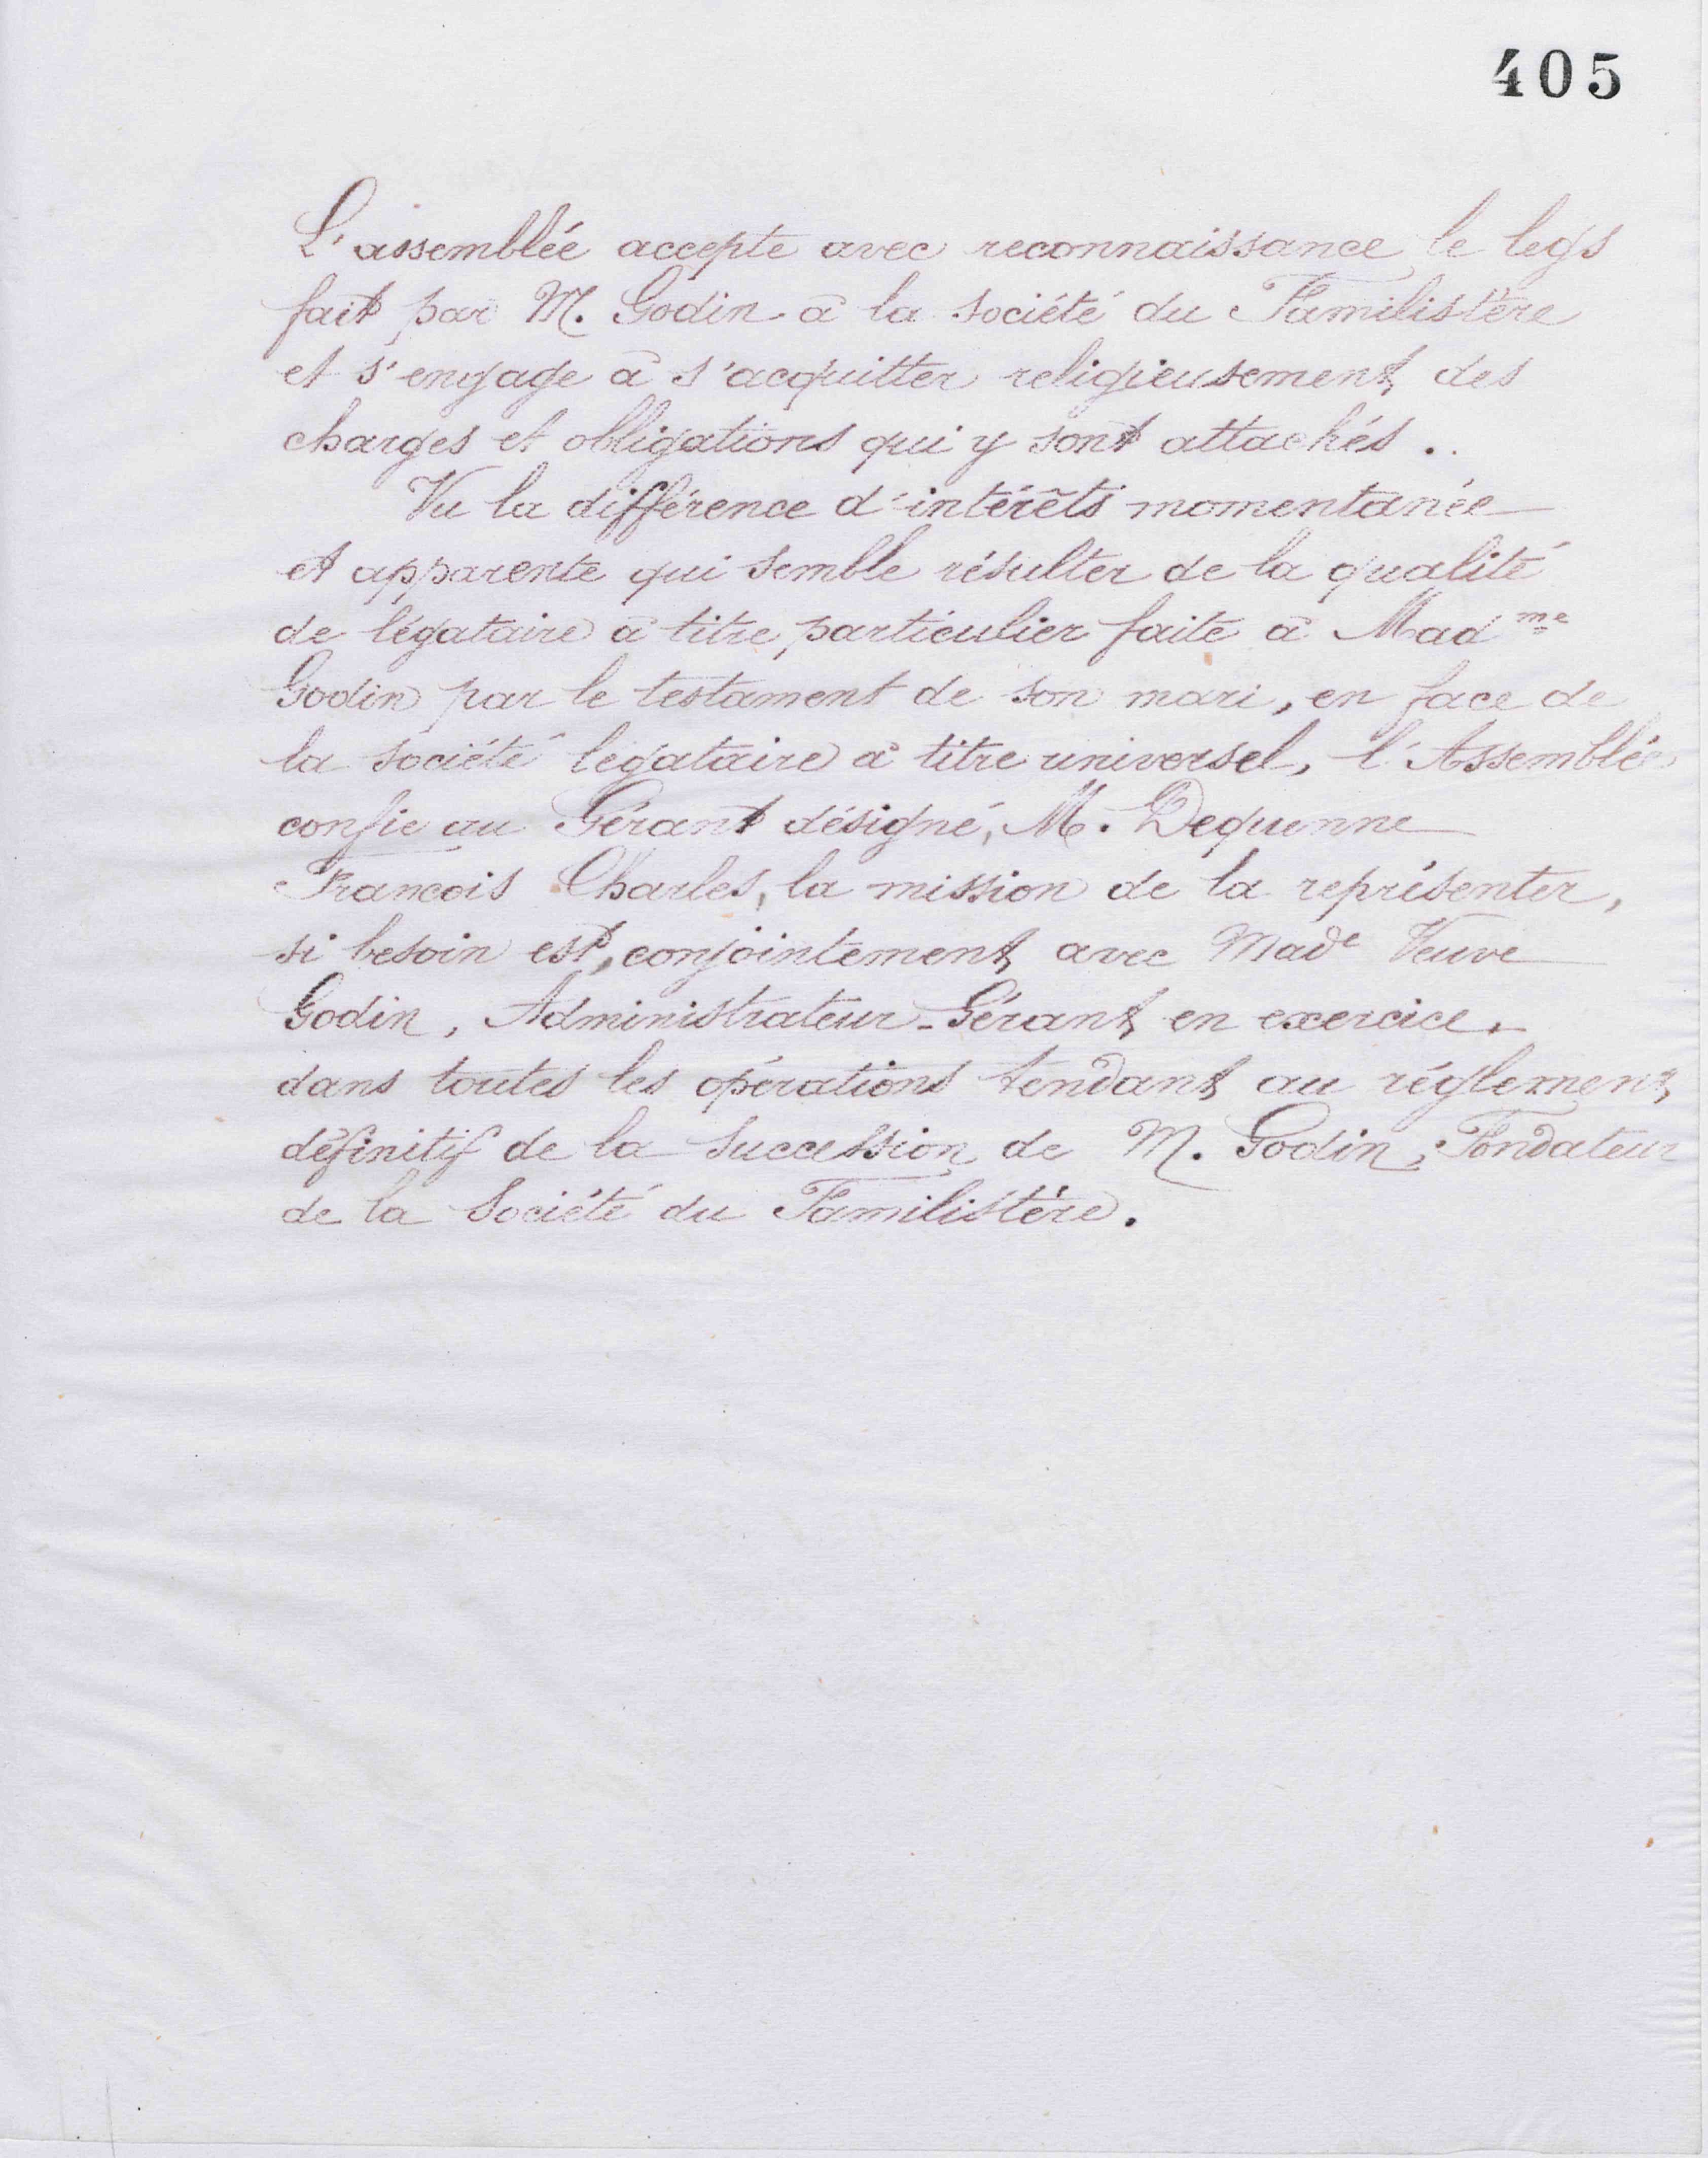 405
L'assemblée accepte avec reconnaissance le legs
fait par M. Godin à la société du Familistère
et s'engage à s'acquitter religieusement des
charges et obligations qui y sont attachés.
Vu la différence d'intérêts momentanée
et apparente qui semble résulter de la qualité
de légataire à titre particulier faite à Mad me
Godin par le testament de son mari, en face de
la société légataire à titre universel, l'Assemblée
confie au Gérant désigné, M. Dequenne
François Charles, la mission de la représenter,
si besoin est, conjointement avec Made Veuve
Godin, Administrateur-Gérant en exercice,
dans toutes les opérations tendant au réglement
définitif de la succession de M. Godin, Fondateur
de la Société du Familistère.